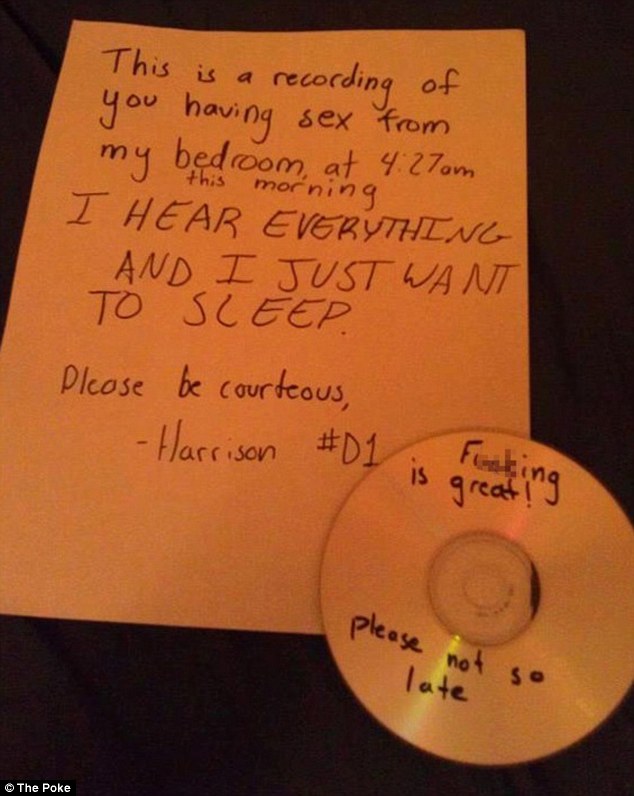 This is a recording of
you having sex from
my bedroom, at 4:27am
this morning
I HEAR EVERYTHING
AND I JUST WANT
TO SLEEP.
Please be courteous,
- Harrison #D1
F ing
is great!
please not so
late
© The Poke